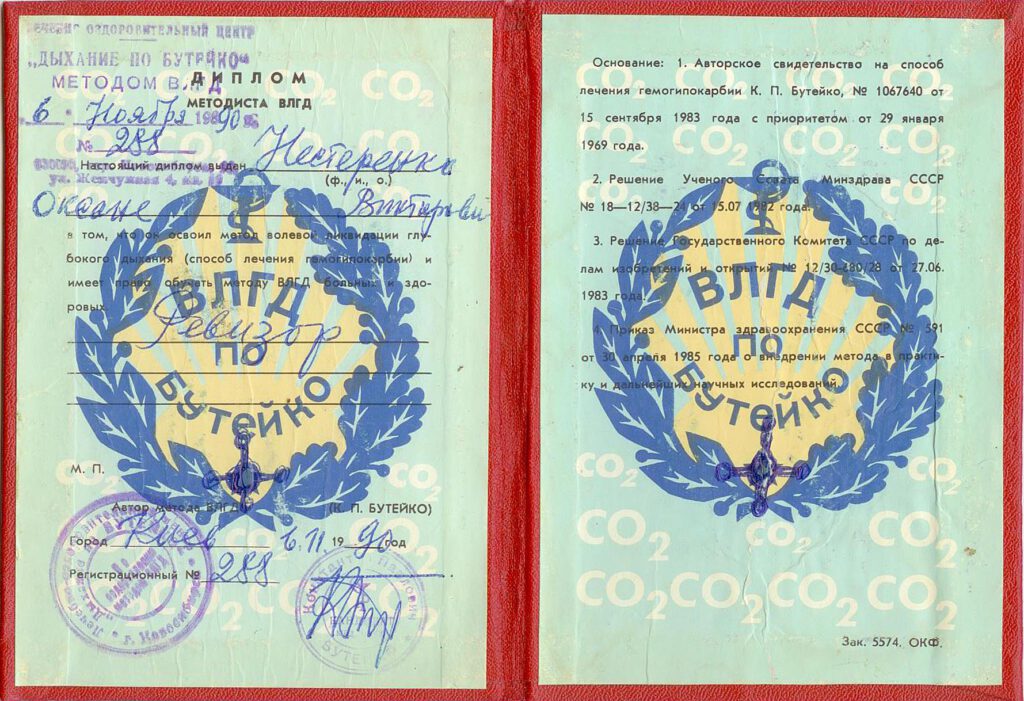 ОЗДОРОВИТЕЛЬНЫЙ ЦЕНТР
„ДЫХАНИЕ ПО БУТЕЙКО“
МЕТОДОМ ВЛГД
ДИПЛОМ
МЕТОДИСТА ВЛГД
6 Ноября 1990 г.
№ 288
ул. Жемчужная 4,
Настоящий диплом выдан Нестеренко
(ф., и., о.)
Оксане
в том, что он освоил метод волевой ликвидации глу-
бокого дыхания (способ лечения гемогипокарбии) и
имеет право обучать методу ВЛГД больных и здо-
ровых.
Ревизор
ВЛГД
ПО
БУТЕЙКО
М. П.
Автор метода ВЛГД (К. П. БУТЕЙКО)
Город Киев 6.11 1990 год
Регистрационный № 288
г. Новосибирск
БУТЕЙКО
CO2
Основание: 1. Авторское свидетельство на способ
лечения гемогипокарбии К. П. Бутейко, № 1067640 от
15 сентября 1983 года с приоритетом от 29 января
1969 года.
2. Решение Ученого Совета Минздрава СССР
№ 18—12/38—24 от 15.07 1982 года.
3. Решение Государственного Комитета СССР по де-
лам изобретений и открытий № 12/30-480/28 от 27.06.
1983 года.
4. Приказ Министра здравоохранения СССР № 591
от 30 апреля 1985 года о внедрении метода в практи-
ку и дальнейших научных исследований.
ВЛГД
ПО
БУТЕЙКО
CO2
Зак. 5574. ОКФ.